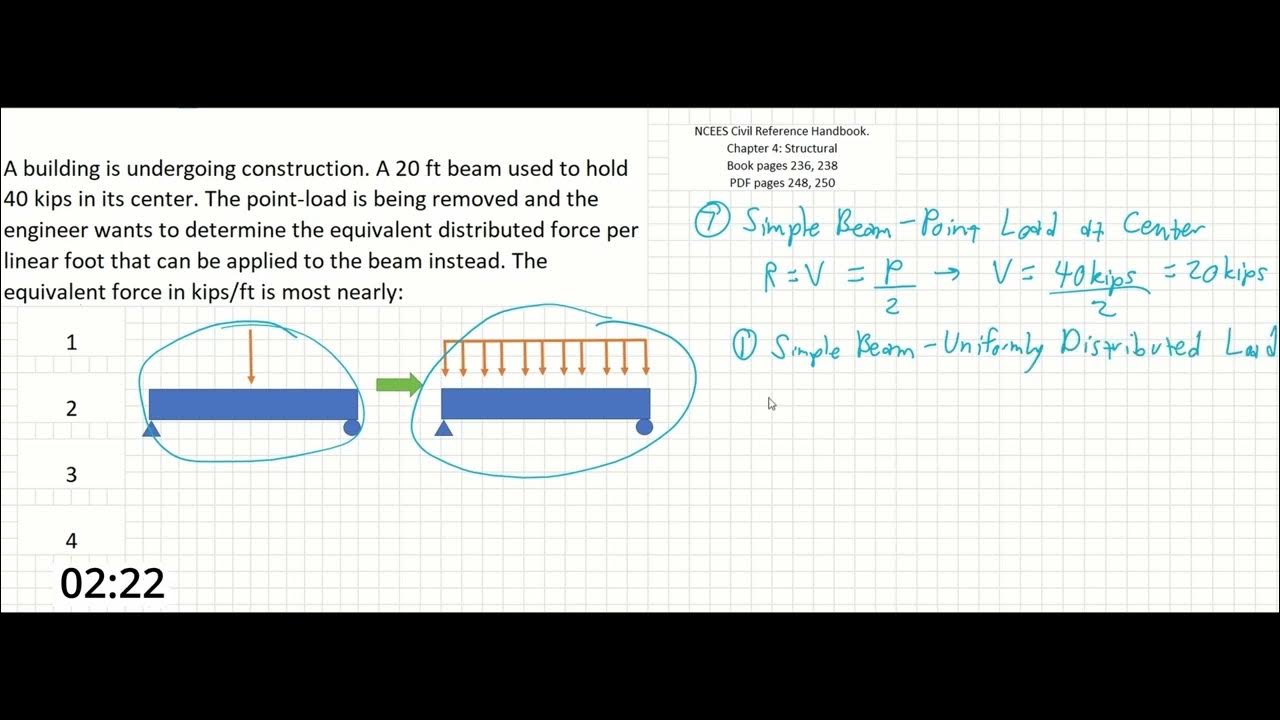 A building is undergoing construction. A 20 ft beam used to hold
40 kips in its center. The point-load is being removed and the
engineer wants to determine the equivalent distributed force per
linear foot that can be applied to the beam instead. The
equivalent force in kips/ft is most nearly:
1
2
3
4
02:22
NCEES Civil Reference Handbook.
Chapter 4: Structural
Book pages 236, 238
PDF pages 248, 250
⑦ Simple Beam - Point Load at Center
R = V = P/2 → V = 40kips/2 = 20kips
① Simple Beam - Uniformly Distributed Load